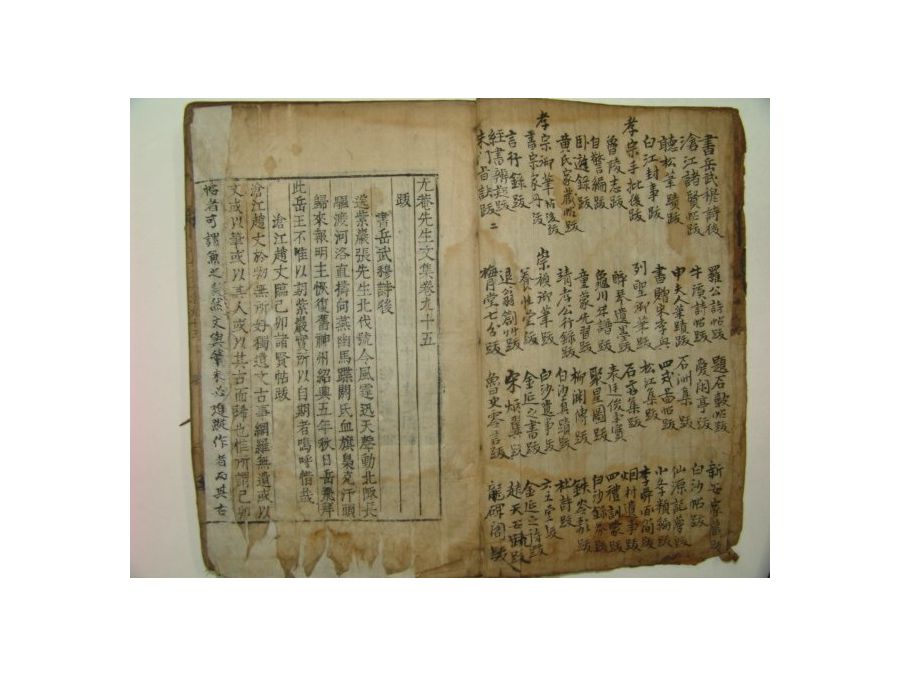 書岳武穆詩後
滄江諸賢帖跋
聽松筆蹟跋
白江封事跋
孝宗手批後跋
魯陵志跋
自警編跋
臥遊錄跋
黃氏家藏帖跋
孝宗御筆帖後跋
言行錄跋
經書辨疑跋
朱門旨訣跋 二
羅公詩帖跋
牛溪詩帖跋
申夫人筆蹟跋
列聖御筆跋
醉琴遺墨跋
龜川年譜跋
童蒙先習跋
靖孝公行錄跋
崇禎御筆跋
養性堂跋
退翁劄艸跋
梅月堂七分跋
愛閑亭跋
石洲集跋
四戒圖帖跋
松江集跋
石峯集跋
聚星圖跋
柳淵傳跋
白沙眞蹟跋
白沙遺事跋
金延之書跋
魯史零言跋
新安家藏跋
白沙帖跋
仙源記夢跋
小學類編跋
烟村遺事跋
四禮訓蒙跋
杜詩跋
金延之詩跋
尤菴先生文集卷九十五
跋
書岳武穆詩後
送紫巖張先生北伐號令風霆迅天聲動北陬長
驅渡河洛直擣向燕幽馬蹀閼氏血旗梟克汗頭
歸來報明主恢復舊神州紹興五年秋日岳飛拜
此岳王不唯以勗紫巖實所以自期者嗚呼惜哉
滄江趙丈臨己卯諸賢帖跋
滄江趙丈於物無所好獨遺文古事網羅無遺或以
文或以筆或以其人或以其古而疇也惟所謂己卯
帖者可謂兼之矣然文與筆未必進蹤作者而其古